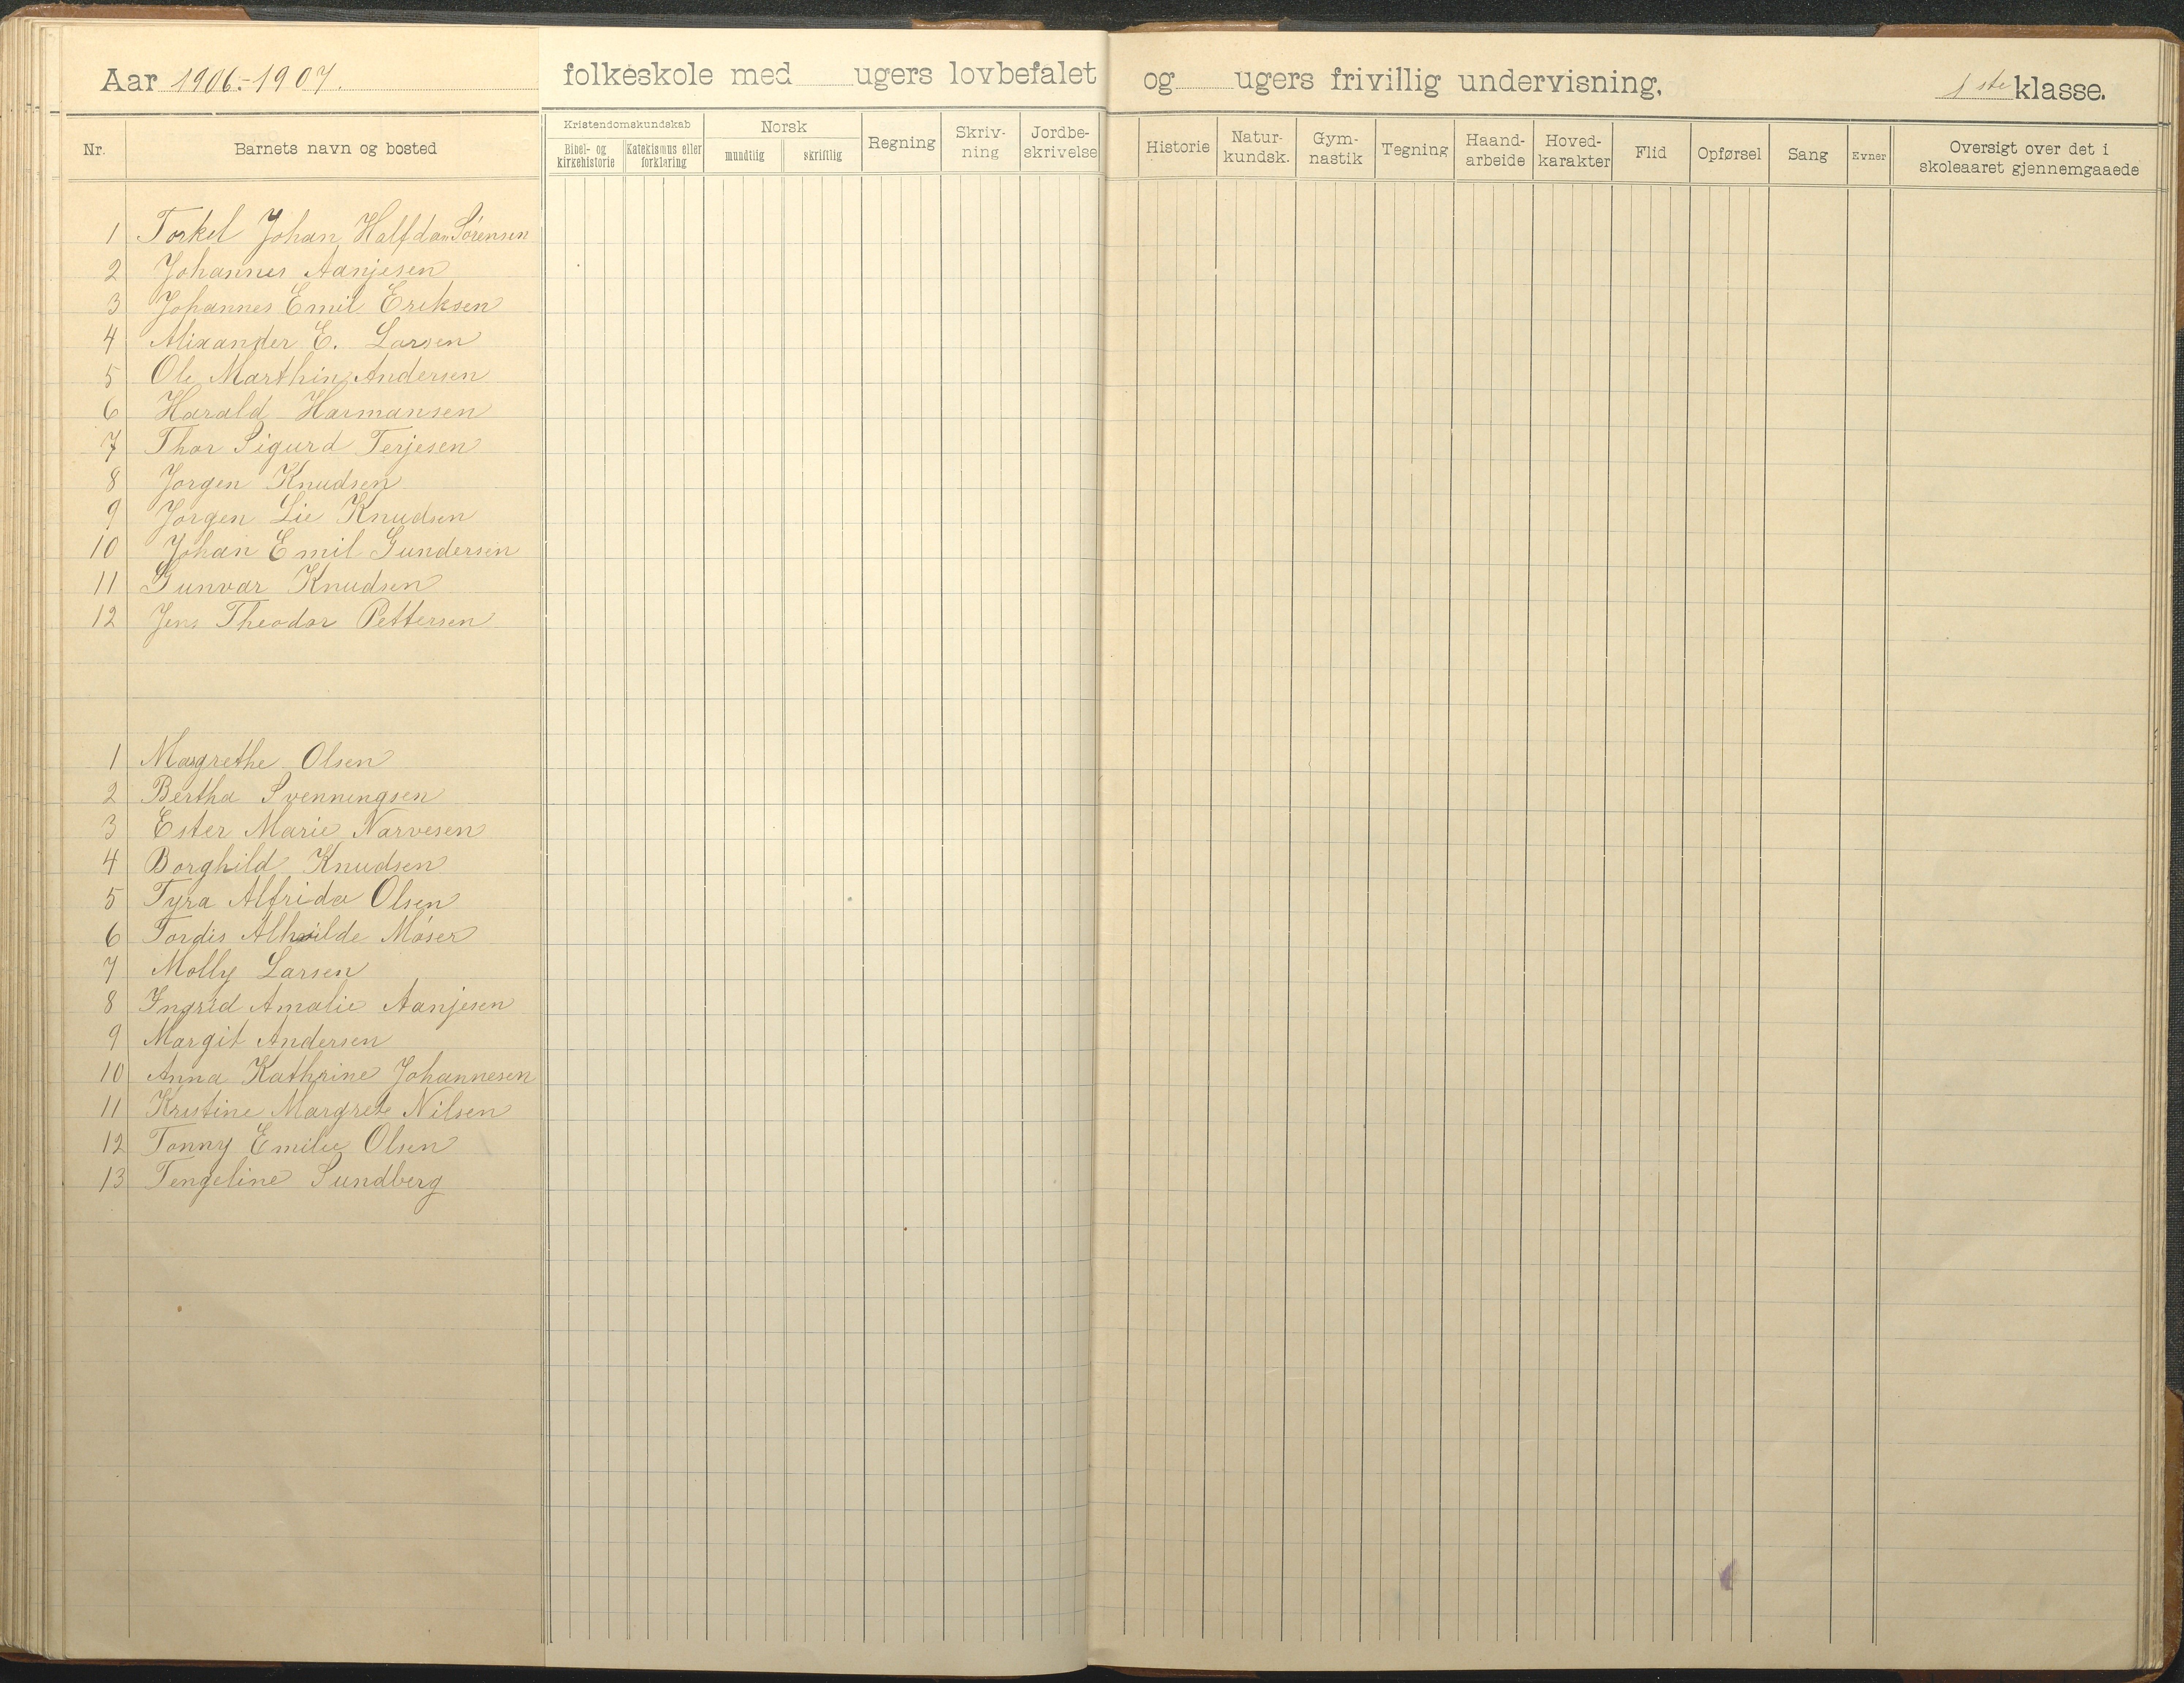 Aar 1906.-1907. folkeskole med ugers lovbefalet og ugers frivillig undervisning, 1ste klasse.
Nr. Barnets navn og bosted
Kristendomskundskab
Bibel- og kirkehistorie
Katekismus eller forklaring
Norsk
mundtlig
skriftlig
Regning
Skriv-
ning
Jordbe-
skrivelse
Historie
Natur-
kundsk.
Gym-
nastik
Tegning
Haand-
arbeide
Hoved-
karakter
Flid
Opførsel
Sang
Evner
Oversigt over det i
skoleaaret gjennemgaaede
1 Torkel Johan Halfdan Sörensen
2 Johannes Aanjesen
3 Johannes Emil Eriksen
4 Alixander E. Larsen
5 Ole Marthin Andersen
6 Harald Harmansen
7 Thor Sigurd Terjesen
8 Jorgen Knudsen
9 Jorgen Lie Knudsen
10 Johan Emil Gundersen
11 Gunvar Knudsen
12 Jens Theodor Pettersen
1 Margrethe Olsen
2 Bertha Svenningsen
3 Ester Marie Narvesen
4 Borghild Knudsen
5 Tyra Alfrida Olsen
6 Tordis Alhvilde Móser
7 Molly Larsen
8 Ingrid Amalie Aanjesen
9 Margit Andersen
10 Anna Kathrine Johannesen
11 Kristine Margrete Nilsen
12 Tonny Emilie Olsen
13 Tengeline Sundberg